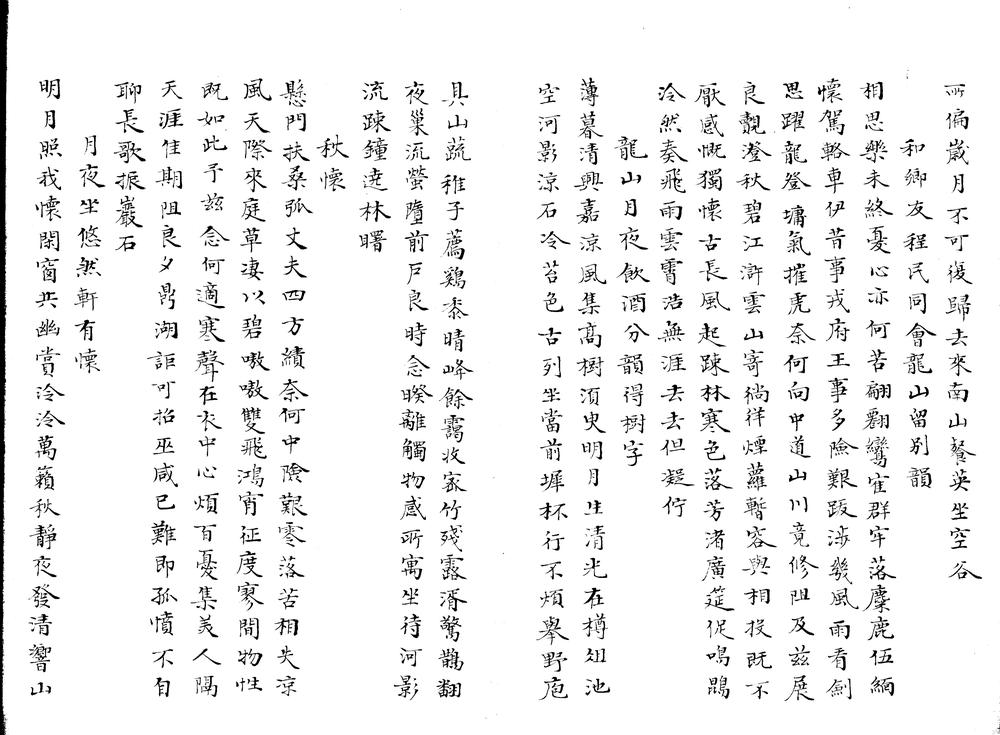 所偏歲月不可復歸去來南山餐英坐空谷
和鄉友程民同會龍山留別韻
相思樂未終憂心亦何苦翩翩鸞寉群牢落麋鹿伍緬
懷駕輅車伊昔事戎府王事多險艱跋涉幾風雨看劍
思躍龍登墉氣摧虎奈何向中道山川竟修阻及茲展
良覿澄秋碧江滸雲山寄徜徉煙蘿暫容與相投既不
厭感慨獨懷古長風起踈林寒色落芳渚廣筵促鳴鵾
泠然奏飛雨雲霄浩無涯去去但凝佇
龍山月夜飲酒分韻得樹字
薄暮清興嘉涼風集高樹須臾明月生清光在樽俎池
空河影涼石冷苔色古列坐當前墀杯行不煩舉野庖
具山蔬稚子薦鷄黍晴峰餘靄收家竹殘露湑驚鵲翻
夜巢流螢墮前戶良時念暌離觸物感所寓坐待河影
流踈鐘遶林曙
秋懷
懸門扶桑弧丈夫四方績奈何中險艱零落苦相失涼
風天際來庭草凄以碧嗷嗷雙飛鴻宵征度寥間物性
既如此予茲念何適寒聲在衣中心煩百憂集美人隔
天涯佳期阻良夕鼎湖詎可招巫咸已難即孤憤不自
聊長歌振巖石
月夜坐悠然軒有懷
明月照我懷閑窗共幽賞泠泠萬籟秋靜夜發清響山